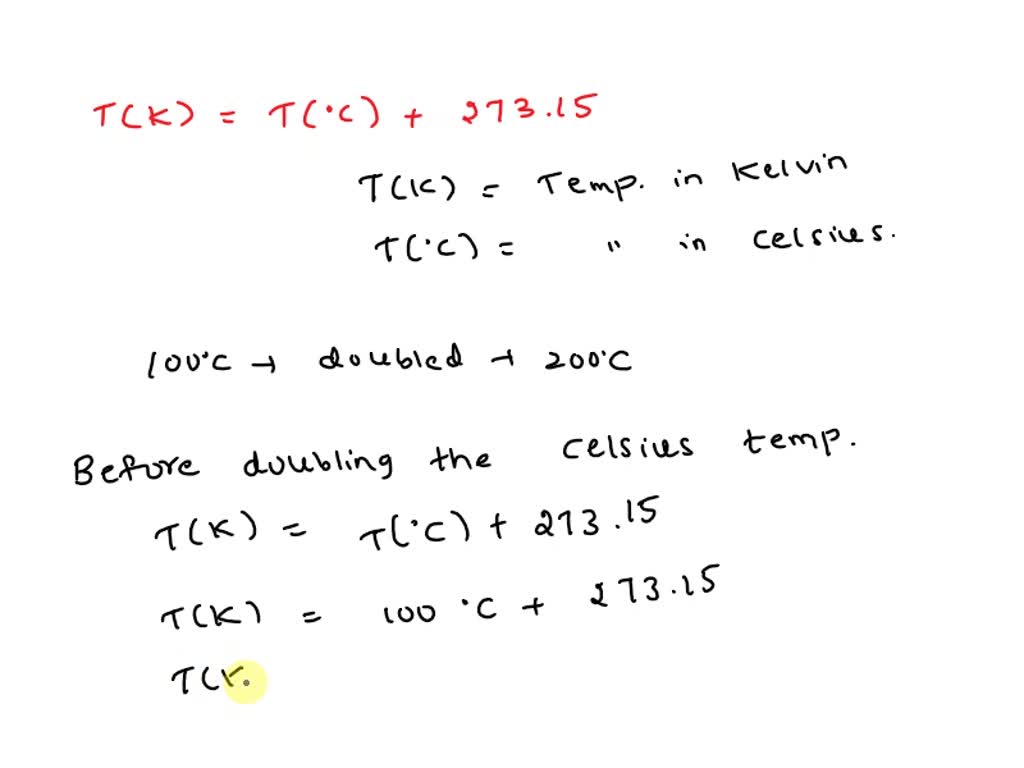 T(K) = T(°C) + 273.15
T(K) = Temp. in Kelvin
T(°C) = " in celsius.
100°C → doubled → 200°C
Before doubling the celsius temp.
T(K) = T(°C) + 273.15
T(K) = 100 °C + 273.15
T(K